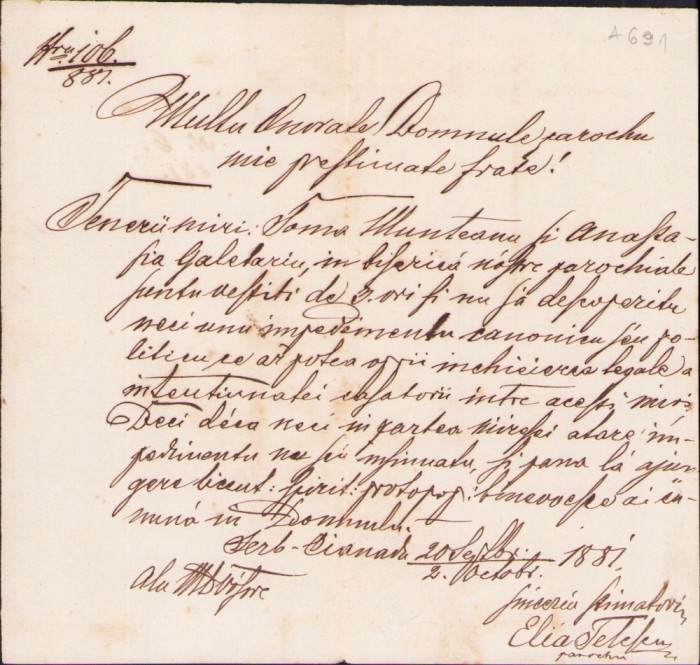 A 691
Nru 106.
881.
Multu Onorate Domnule parochu
mie prestimate frate!
Tenerii miri: Toma Munteanu si Anasta-
sia Galetariu, in biserică nóstre parochiale
suntu vestiti de 3. ori si nu sa descoperitu
neci unu impedimentu canonicu séu po-
liticu ce ar potea opri inchieierea legale a
intentiunatei casatorii intre acesti miri.
Deci déca neci in partea miresei atare im-
pedimentu nu sa insinuatu, si pana la ajun-
gere licent: spirit: protopop: binevoesce ai cu-
nuná in Domnulu.
Serb-Cianadu 20 Septbr. 1881.
2. Octobr.
Alu MD vóstre
sinceriu stimatoriu
Elia Telescu
parochu